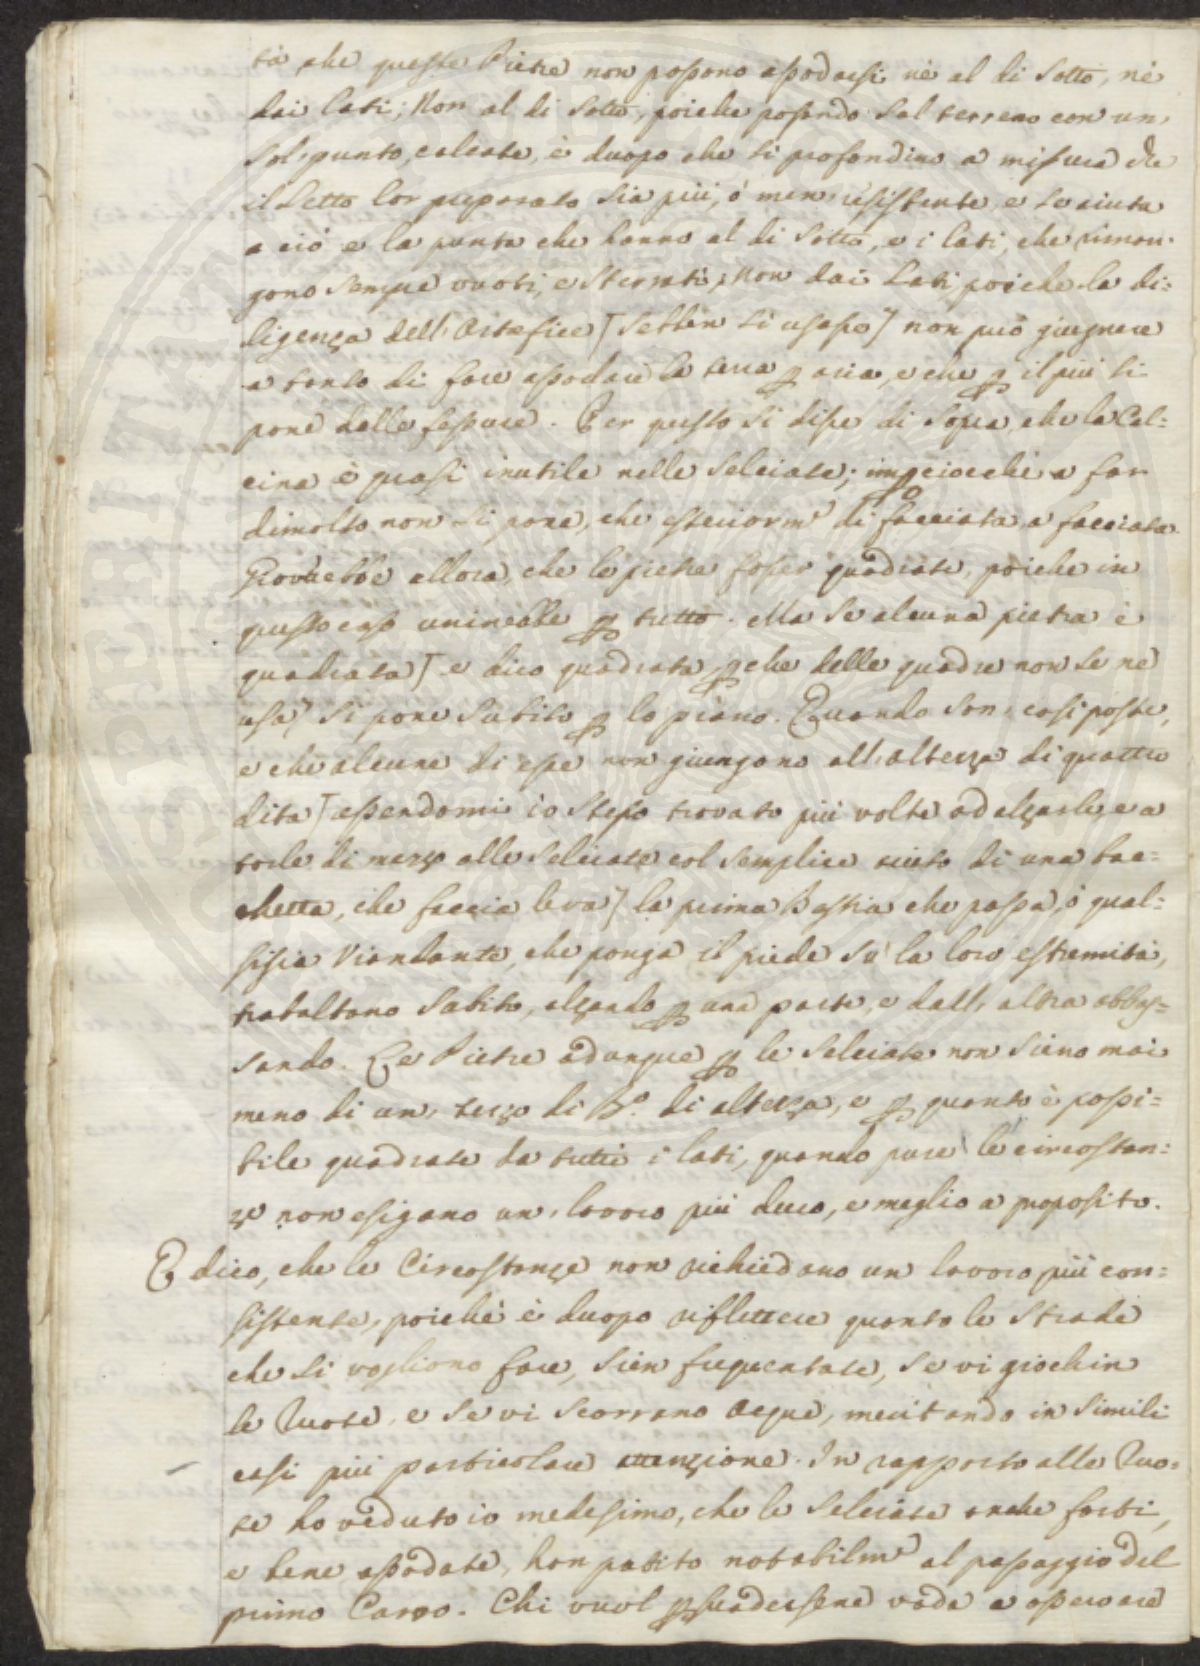 tà, che queste Pietre non possono assodarsi nè al di sotto, nè
dai lati; Non al di sotto, poiche posando sul terreno con un,
sol, punto, calcate, è duopo che si profondino a misura che
il Letto lor preparato sia più, ò men, resistente, e le aiuta
a ciò e la punta che hanno al di sotto, e i lati, che riman-
gono sempre vuoti, e sterrati; Non dai Lati, poiche la di:
ligenza dell'Artefice [sebben si usasse] non può giugnere
a tanto di fare assodare la terra p aria, e che p il più si
pone delle fessure. Per questo si disse di sopra, che la Cal:
cina è quasi inutile nelle selciate; impciocchè a far
dimolto non si pone, che esteriorm.e di facciata, a facciata.
Gioverebbe allora, che le pietre fosser quadrate, poiche in
questo caso unirebbe p tutto. Ma se alcuna pietra è
quadrata [e dico quadrata pche delle quadre non se ne
usa] si pone subito p lo piano. Quando son, così poste,
e che alcune di esse non giungono all'altezza di quattro
dita [essendomi io stesso trovato più volte ad alzarle, e a
torle di mezzo alle selciate col semplice aiuto di una bac:
chetta, che faccia leva] la prima Bestia che passa, ò qual:
sisia Viandante, che ponga il piede sù la loro estremità,
trabaltano subito, alzando p una parte, e dall'altra abbas=
sando. Le Pietre adunque p le selciate non sieno mai
meno di un, terzo di B.o di altezza, e p quanto è possi=
bile quadrate da tutti i lati, quando pure le circostan:
ze non esigano un, lavoro più duro, e meglio a proposito.
E dico, che le Circostanze non richiedano un lavoro più con:
sistente, poichè è duopo riflettere quanto le Strade
che si vogliono fare, sien frequentate, se vi giochin
le Ruote, e se vi scorrano Acque, meritando in simili
casi più particolare attenzione. In rapporto alle Ruo:
te ho veduto io medesimo, che le selciate anche forti,
e bene assodate, han patito notabilm.e al passaggio del
primo Carro. Chi vuol psuadersene vada a osservare